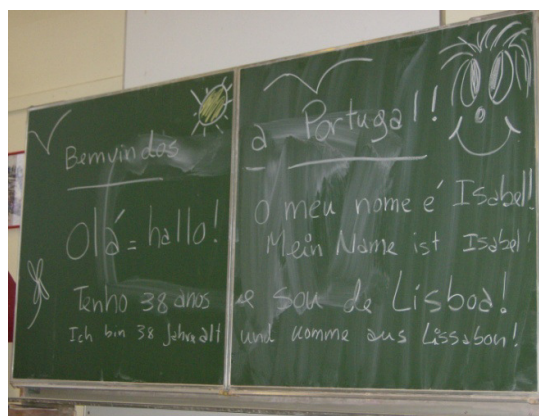 Bemvindos a Portugal!!
Olá = hallo! O meu nome é Isabel!
Mein Name ist Isabel!
Tenho 38 anos e sou de Lisboa!
Ich bin 38 Jahre alt und komme aus Lissabon!